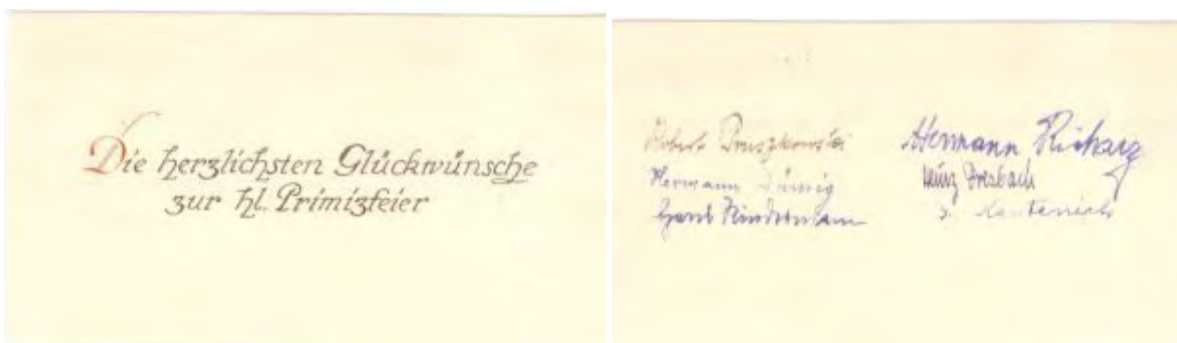 Die herzlichsten Glückwünsche
zur hl. Primizfeier
Robert Pruszkowski
Hermann
Hans Kindermann
Hermann Richarz
Heinz Dresbach